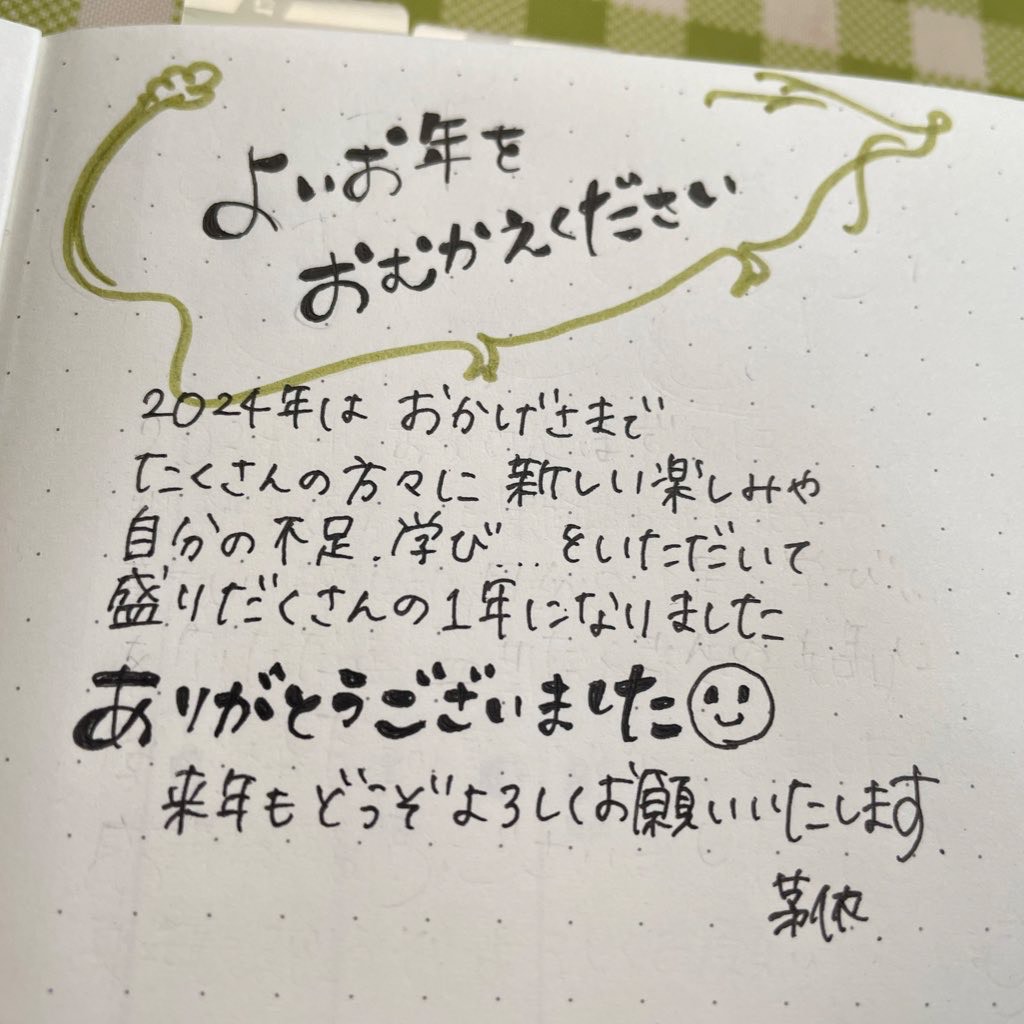 よいお年を
おむかえください
2024年は おかげさまで
たくさんの方々に 新しい楽しみや
自分の不足、学び…をいただいて
盛りだくさんの1年になりました
ありがとうございました
来年もどうぞよろしくお願いいたします.